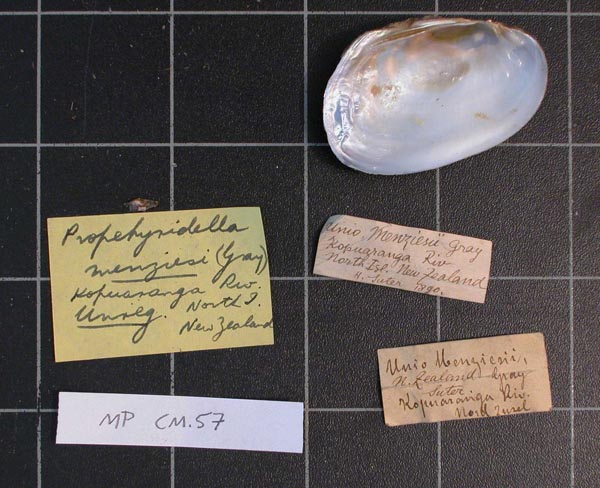 Propehyridella
menziesi (Gray)
Kopuaranga Riv.
Unreg. North I.
New Zealand
MP CM.57
Unio Menziesii Gray
Kopuaranga Riv.
North Isl. New Zealand
H. Suter 1890.
Unio Menziesii,
N. Zealand Gray
Suter
Kopuaranga Riv.
North